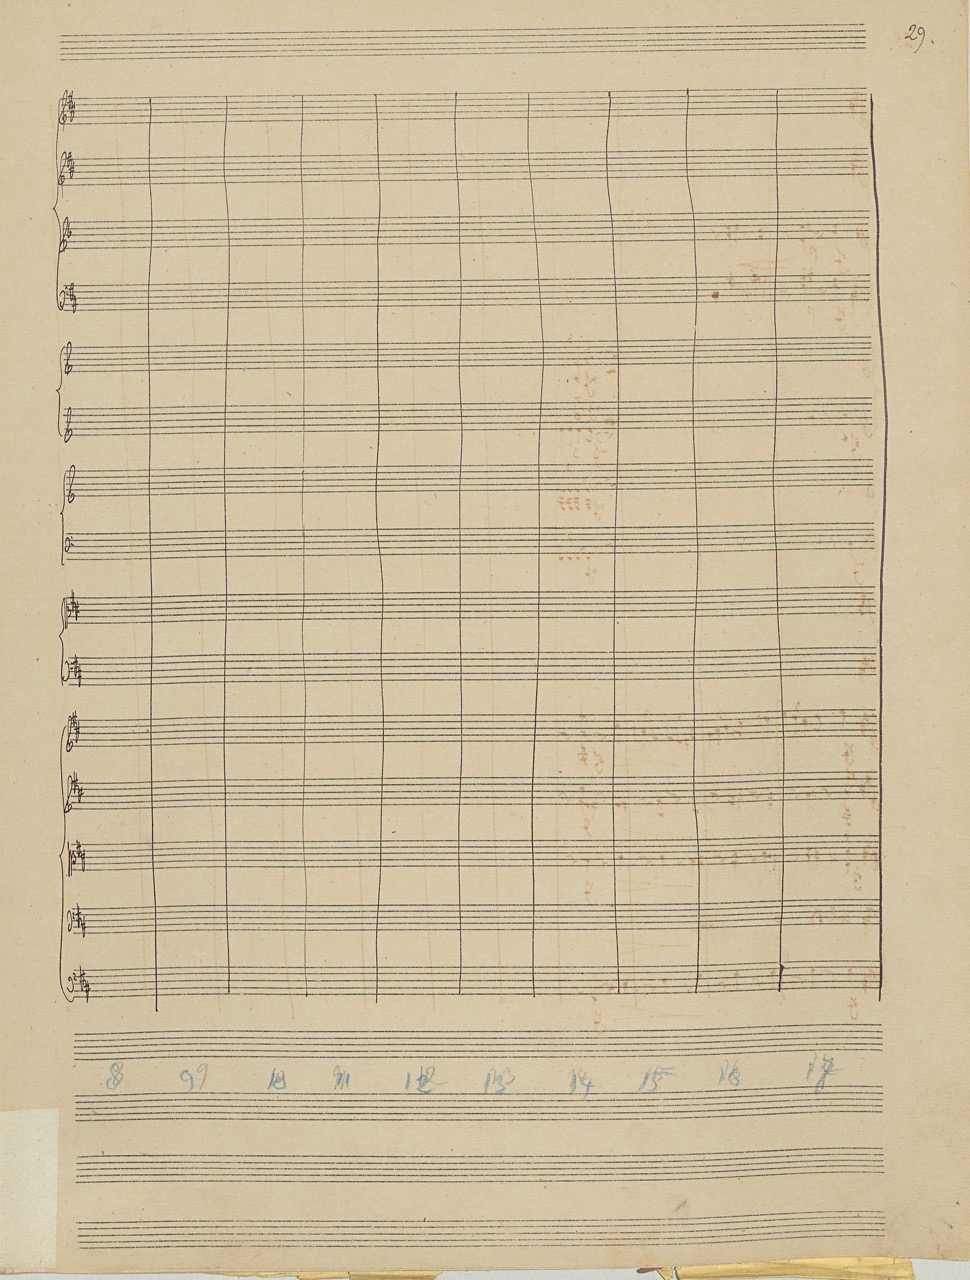 29.
8 9 9 10 11 12 13 14 15 16 17